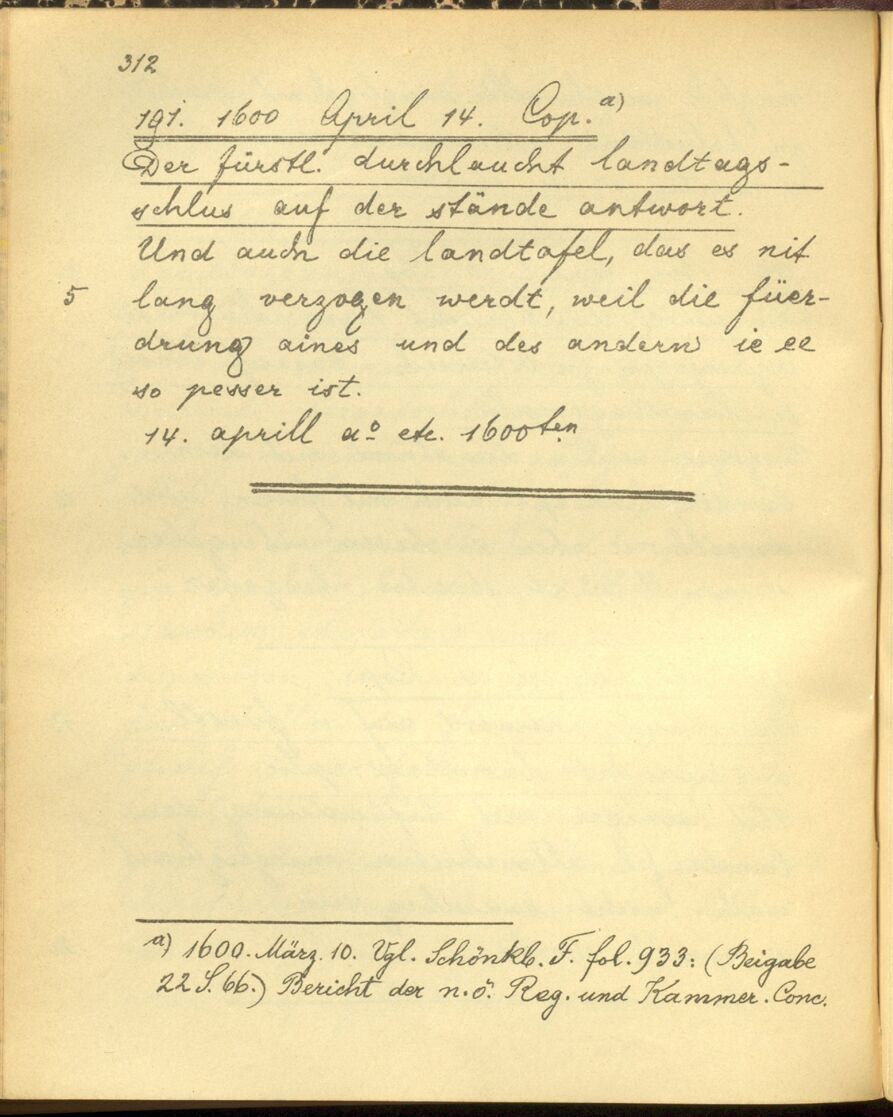 312
191. 1600 April 14. Cop. a)
Der fürstl. durchlaucht landtags-
schlus auf der stände antwort.
Und auch die landtafel, das es nit
5 lang verzogen werdt, weil die füer-
drung aines und des andern ie ee
so pesser ist.
14. aprill aº etc. 1600ten
a) 1600. März. 10. Vgl. Schönkb. F. fol. 933: (Beigabe
22 S. 66.) Bericht der n.ö. Reg. und Kammer. Conc.